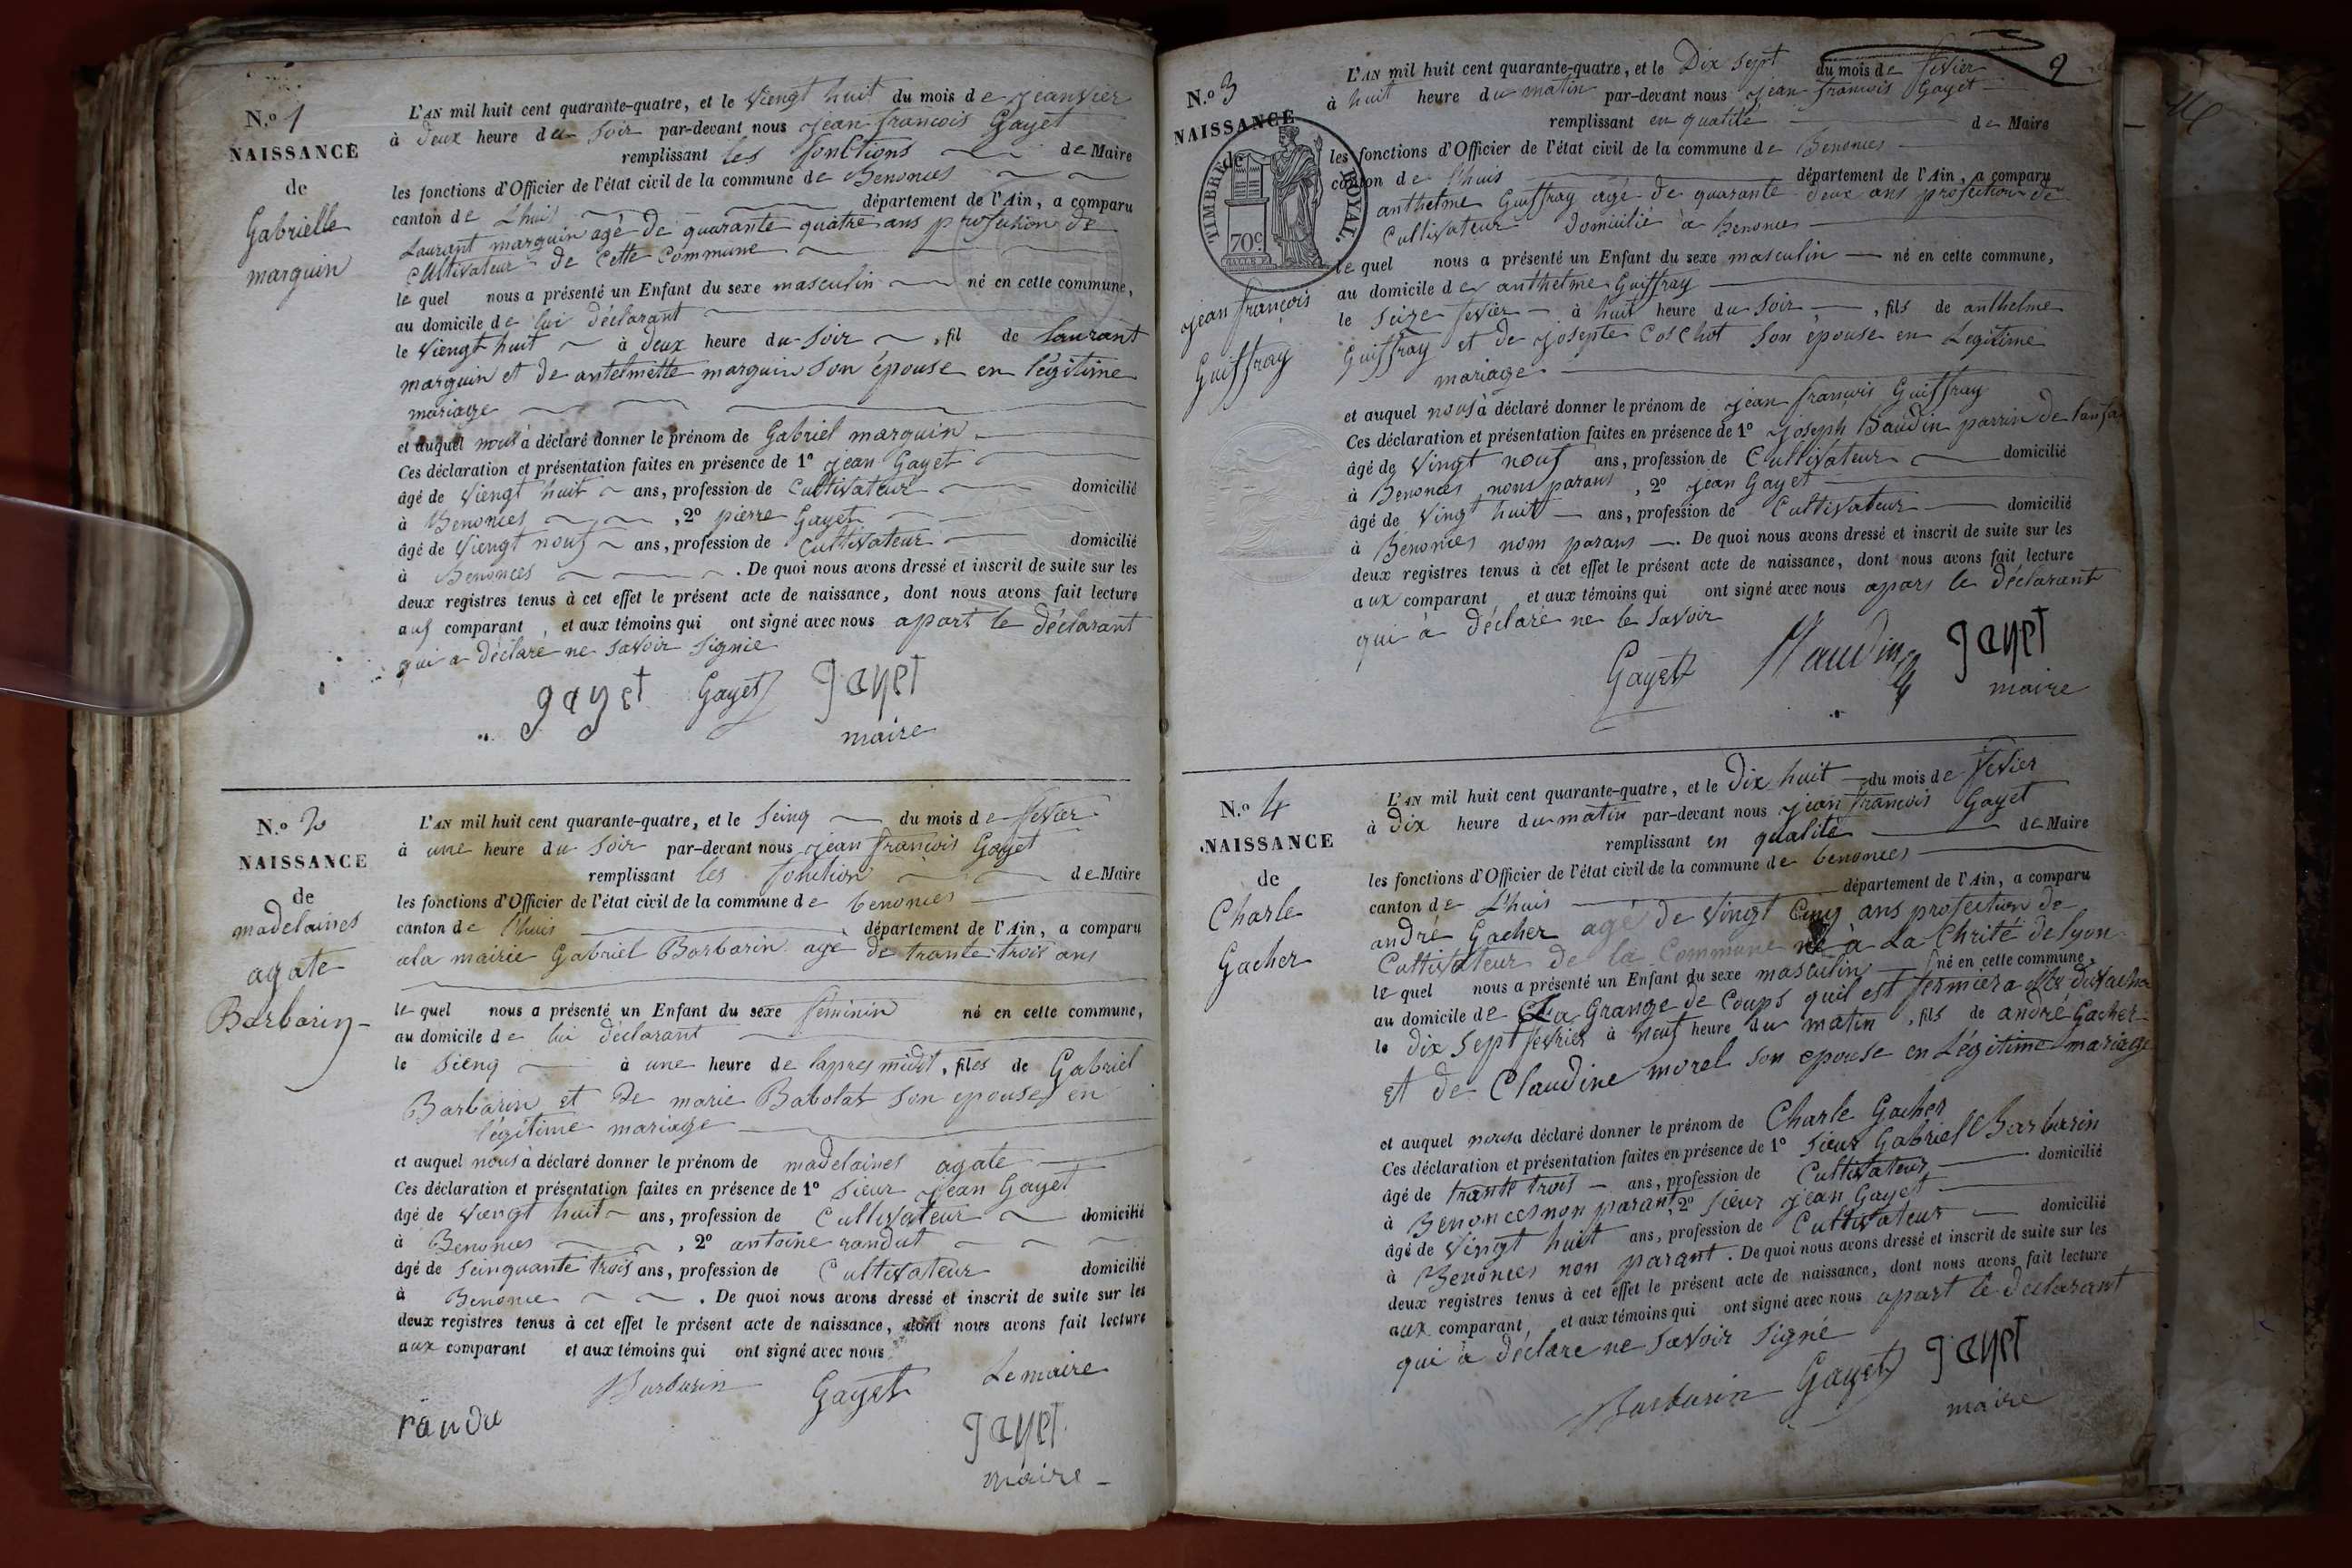 N.o 1
NAISSANCE
de
Gabrielle
marguin
L'AN mil huit cent quarante-quatre, et le Viengt huit du mois de jeanvier
à deux heure du Soir par-devant nous jean françois Gayet
remplissant les fonctions de Maire
les fonctions d'Officier de l'état civil de la commune de Benonces
canton de L'huis département de l'Ain, a comparu
Laurant marguin agé de quarante quatre ans profution de
Cultivateur de cette Commune
le quel nous a présenté un Enfant du sexe masculin né en cette commune,
au domicile de lui déclarant
le Viengt huit à deux heure du Soir, fil de Laurant
marguin et de antelmette marguin son épouse en légitime
mariage
et auquel nous à déclaré donner le prénom de Gabriel marguin
Ces déclaration et présentation faites en présence de 1o jean Gayet
âgé de Viengt huit ans, profession de Cultivateur domicilié
à Benonces, 2o pierre Gayet
âgé de Viengt nouf ans, profession de Cultivateur domicilié
à Benonces. De quoi nous avons dressé et inscrit de suite sur les
deux registres tenus à cet effet le présent acte de naissance, dont nous avons fait lecture
aux comparant, et aux témoins qui ont signé avec nous apart le déclarant
qui a déclare ne savoir signie
gayet Gayet gayet
maire
N.o 2
NAISSANCE
de
madelaines
agate
Barbarin
L'AN mil huit cent quarante-quatre, et le Seinq du mois de fevier
à une heure du Soir par-devant nous jean françois Gayet
remplissant les fonction de Maire
les fonctions d'Officier de l'état civil de la commune de benonces
canton de l'huis département de l'Ain, a comparu
ala mairie Gabriel Barbarin agé de trante trois ans
le quel nous a présenté un Enfant du sexe feminin né en cette commune,
au domicile de lui déclarant
le sienq à une heure de lapres midit, files de Gabriel
Barbarin et De marie Babolat son epouse en
légitime mariage
et auquel nous à déclaré donner le prénom de madelaines agate
Ces déclaration et présentation faites en présence de 1o Sieur jean Gayet
âgé de Viengt huit ans, profession de Cultivateur domicilié
à Benonces, 2o antoine randut
âgé de Seinquante trois ans, profession de Cultivateur domicilié
à Benonce. De quoi nous avons dressé et inscrit de suite sur les
deux registres tenus à cet effet le présent acte de naissance, dont nous avons fait lecture
aux comparant et aux témoins qui ont signé avec nous
Barbarin Gayet Le maire
randu gayet
maire
2
N.o 3
NAISSANCE
de
TIMBRE ROYAL.
70c
jean françois
Guiffray
L'AN mil huit cent quarante-quatre, et le Dix Sept du mois de fevier
à huit heure du matin par-devant nous jean françois Gayet
remplissant en qualité de Maire
les fonctions d'Officier de l'état civil de la commune de Benonces
canton de l'huis département de l'Ain, a comparu
anthelme Guiffray agé de quarante deux ans profection de
Cultivateur domicilié à benonces
le quel nous a présenté un Enfant du sexe masculin né en cette commune,
au domicile de anthelme Guiffray
le Seize fevier à huit heure du Soir, fils de anthelme
Guiffray et de josepte Coschot son épouse en Legitime
mariage
et auquel nous à déclaré donner le prénom de jean françois Guiffray
Ces déclaration et présentation faites en présence de 1o joseph Baudin parrin de lanfa
âgé de Vingt nouf ans, profession de Cultivateur domicilié
à Benonces nons parans, 2o jean Gayet
âgé de Vingt huit ans, profession de Cultivateur domicilié
à Benonces nom parans. De quoi nous avons dressé et inscrit de suite sur les
deux registres tenus à cet effet le présent acte de naissance, dont nous avons fait lecture
aux comparant et aux témoins qui ont signé avec nous apars le déclarant
qui à déclaré ne le savoir
Gayet Baudin gayet
maire
N.o 4
NAISSANCE
de
Charle
Gacher
L'AN mil huit cent quarante-quatre, et le Dix huit du mois de fevier
à Dix heure du matin par-devant nous jean françois Gayet
remplissant en qualité de Maire
les fonctions d'Officier de l'état civil de la commune de benonces
canton de L'huis département de l'Ain, a comparu
andré Gacher agé de Vingt Cinq ans profection de
Cultivateur de la Commune né à La Chrité de lyon
le quel nous a présenté un Enfant du sexe masculin né en cette commune,
au domicile de La Grange de Coups quil est fermier a
le dix sept février à neuf heure du matin, fils de andré Gacher
et de Claudine morel son epouse en Légitime mariage
et auquel nous a déclaré donner le prénom de Charle Gacher
Ces déclaration et présentation faites en présence de 1o Sieur Gabriel Barbarin
âgé de trante trois ans, profession de Cultivateur domicilié
à Benonces non parant, 2o Sieur jean Gayet
âgé de Vingt huit ans, profession de Cultivateur domicilié
à Benonces non parant. De quoi nous avons dressé et inscrit de suite sur les
deux registres tenus à cet effet le présent acte de naissance, dont nous avons fait lecture
aux comparant et aux témoins qui ont signé avec nous apart le declarant
qui à déclare ne savoir signé
Barbarin Gayet gayet
maire